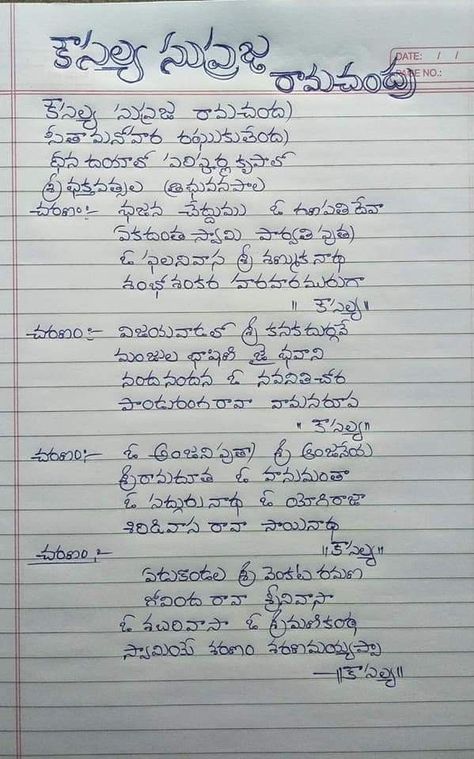 కౌసల్య సుప్రజ
రామచంద్రా
DATE: / /
PAGE NO.:
కౌసల్య సుప్రజ రామచంద్రా
సీతా మనోహర రఘుకులేంద్రా
ధీన దయాలో పరిపూర్ణ కృపాలో
శ్రీ భక్తవత్సల త్రిభువనపాల
చరణం:- భజన చేద్దుము ఓ గణపతి దేవా
ఏకదంత స్వామి పార్వతి పుత్రా
ఓ ఫలనివాస శ్రీ శణ్ముక నాథ
శంభో శంకర హరహర మురుగా
"కౌసల్య"
చరణం:- విజయవాడలో శ్రీ కనకదుర్గవే
మంజుల భాషిణి జై భవాని
నందనందన ఓ నవనీతచోర
పాండురంగ రావా వామనరూప
"కౌసల్య"
చరణం:- ఓ అంజని పుత్రా శ్రీ ఆంజనేయ
శ్రీరామదూత ఓ హనుమంతా
ఓ సద్గురునాథ ఓ యోగిరాజా
శిరిడివాస రావా సాయినాథ
"కౌసల్య"
చరణం:-
ఏడుకొండల శ్రీ వెంకట రమణ
గోవింద రావా శ్రీనివాసా
ఓ శబరివాసా ఓ శ్రీమణికంఠ
స్వామియే శరణం శరణమయ్యప్పా
—"కౌసల్య"